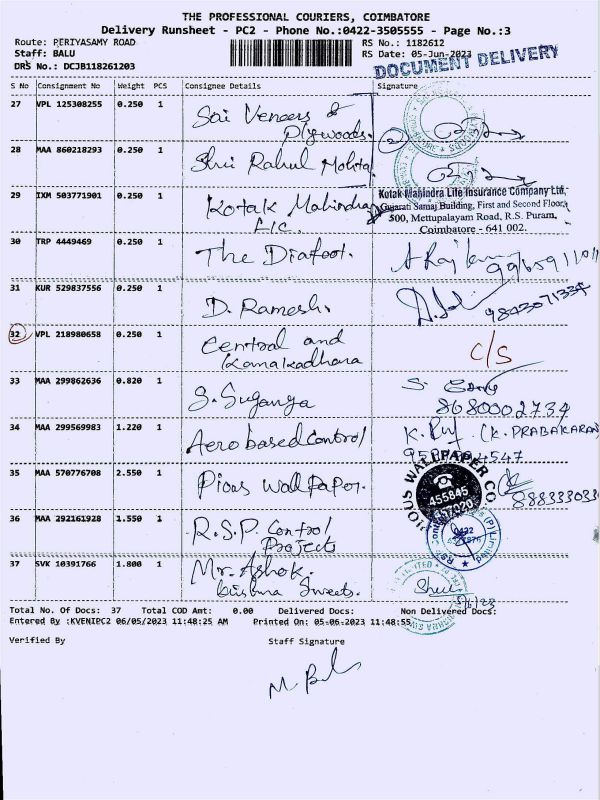 THE PROFESSIONAL COURIERS, COIMBATORE
Delivery Runsheet - PC2 - Phone No.:0422-3505555 - Page No.:3
Route: PERIYASAMY ROAD
RS No.: 1182612
Staff: BALU
RS Date: 05-Jun-2023
DRS No.: DCJB118261203
DOCUMENT DELIVERY
S No Consignment No Weight PCS Consignee Details Signature
27 VPL 125308255 0.250 1 Sai Veneers &
Plywoods.
28 MAA 860218293 0.250 1 Shri Rahul Mohta
29 IXM 503771901 0.250 1 Kotak Mahindra
LIC.
Kotak Mahindra Life Insurance Company Ltd.
Gujarati Samaj Building, First and Second Floor,
500, Mettupalayam Road, R.S. Puram,
Coimbatore - 641 002.
30 TRP 4449469 0.250 1 The Diafoot.
31 KUR 529837556 0.250 1 D. Ramesh.
9843071334
32 VPL 218980658 0.250 1 Central and
Kanakadhara
C/S
33 MAA 299862636 0.820 1 S. Suganya
8680002734
34 MAA 299569983 1.220 1 Aero based Control
(K. PRABAKARAN
35 MAA 570776708 2.550 1 Pious wall Paper.
PIOUS WALLPAPER CO
455845
888333033
36 MAA 292161928 1.550 1 R.S.P. Control
Projects
37 SVK 10391766 1.800 1 Mr. Ashok.
Krishna Sweets.
5/6/23
Total No. Of Docs: 37 Total COD Amt: 0.00 Delivered Docs: Non Delivered Docs:
Entered By :KVENIPC2 06/05/2023 11:48:25 AM Printed On: 05-06-2023 11:48:55
Verified By Staff Signature